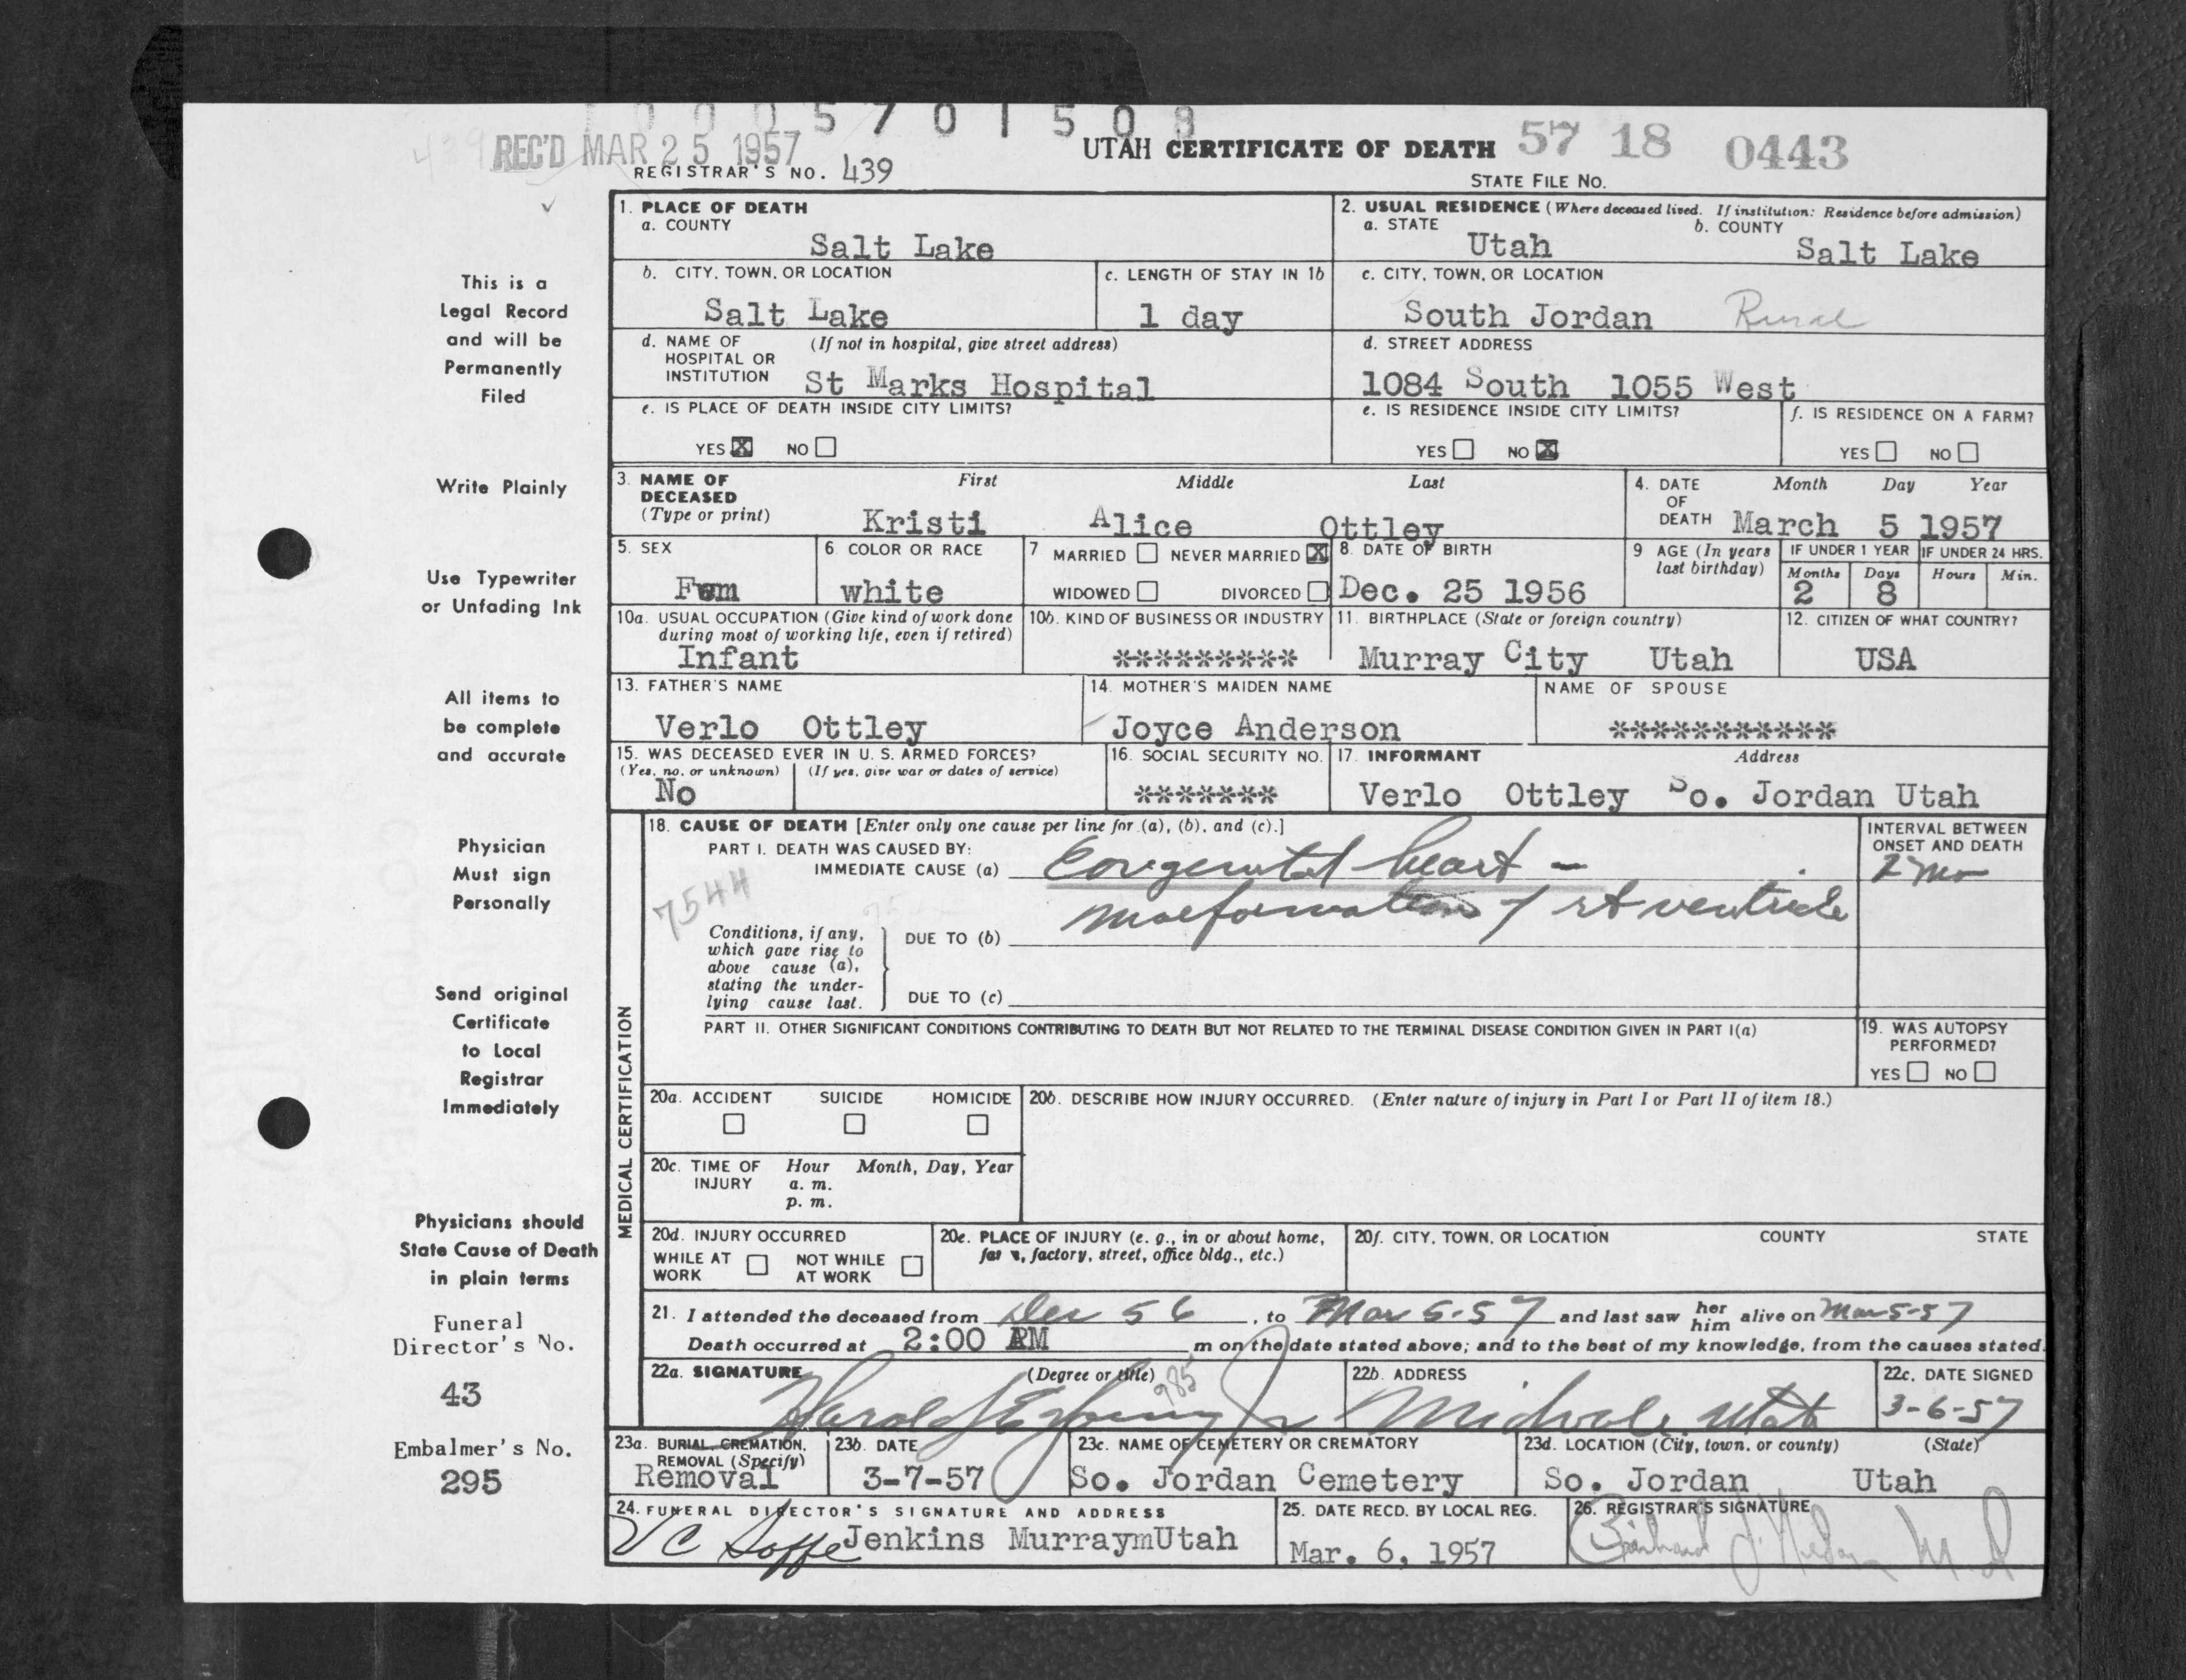 1000 5 7 0 1 5 0 8
439 REC'D MAR 25 1957
REGISTRAR'S NO. 439
UTAH CERTIFICATE OF DEATH 57 18 0443
STATE FILE NO.
This is a
Legal Record
and will be
Permanently
Filed
Write Plainly
Use Typewriter
or Unfading Ink
All items to
be complete
and accurate
Physician
Must sign
Personally
Send original
Certificate
to Local
Registrar
Immediately
Physicians should
State Cause of Death
in plain terms
Funeral
Director's No.
43
Embalmer's No.
295
1. PLACE OF DEATH
a. COUNTY
Salt Lake
2. USUAL RESIDENCE (Where deceased lived. If institution: Residence before admission)
a. STATE b. COUNTY
Utah Salt Lake
b. CITY, TOWN, OR LOCATION
Salt Lake
c. LENGTH OF STAY IN 1b
1 day
c. CITY, TOWN, OR LOCATION
South Jordan Rural
d. NAME OF (If not in hospital, give street address)
HOSPITAL OR
INSTITUTION St Marks Hospital
d. STREET ADDRESS
1084 South 1055 West
e. IS PLACE OF DEATH INSIDE CITY LIMITS?
YES X NO
e. IS RESIDENCE INSIDE CITY LIMITS?
YES NO X
f. IS RESIDENCE ON A FARM?
YES NO
3. NAME OF First Middle Last
DECEASED
(Type or print) Kristi Alice Ottley
4. DATE Month Day Year
OF
DEATH March 5 1957
5. SEX
Fem
6. COLOR OR RACE
white
7 MARRIED NEVER MARRIED X
WIDOWED DIVORCED
8. DATE OF BIRTH
Dec. 25 1956
9 AGE (In years
last birthday)
IF UNDER 1 YEAR
Months Days
2 8
IF UNDER 24 HRS.
Hours Min.
10a. USUAL OCCUPATION (Give kind of work done
during most of working life, even if retired)
Infant
10b. KIND OF BUSINESS OR INDUSTRY
*********
11. BIRTHPLACE (State or foreign country)
Murray City Utah
12. CITIZEN OF WHAT COUNTRY?
USA
13. FATHER'S NAME
Verlo Ottley
14. MOTHER'S MAIDEN NAME
Joyce Anderson
NAME OF SPOUSE
***********
15. WAS DECEASED EVER IN U. S. ARMED FORCES?
(Yes, no, or unknown) (If yes, give war or dates of service)
No
16. SOCIAL SECURITY NO.
*******
17. INFORMANT Address
Verlo Ottley So. Jordan Utah
MEDICAL CERTIFICATION
18. CAUSE OF DEATH [Enter only one cause per line for (a), (b), and (c).]
PART I. DEATH WAS CAUSED BY:
IMMEDIATE CAUSE (a) Congenital heart -
7544 malformation of rt ventricle
INTERVAL BETWEEN
ONSET AND DEATH
2 mo
Conditions, if any,
which gave rise to
above cause (a),
stating the under-
lying cause last.
DUE TO (b)
DUE TO (c)
PART II. OTHER SIGNIFICANT CONDITIONS CONTRIBUTING TO DEATH BUT NOT RELATED TO THE TERMINAL DISEASE CONDITION GIVEN IN PART I(a)
19. WAS AUTOPSY
PERFORMED?
YES NO
20a. ACCIDENT SUICIDE HOMICIDE
20b. DESCRIBE HOW INJURY OCCURRED. (Enter nature of injury in Part I or Part II of item 18.)
20c. TIME OF Hour Month, Day, Year
INJURY a. m.
p. m.
20d. INJURY OCCURRED
WHILE AT NOT WHILE
WORK AT WORK
20e. PLACE OF INJURY (e. g., in or about home,
farm, factory, street, office bldg., etc.)
20f. CITY, TOWN, OR LOCATION COUNTY STATE
21. I attended the deceased from Dec 56, to Mar 5-57 and last saw her him alive on Mar 5-57
Death occurred at 2:00 PM m on the date stated above; and to the best of my knowledge, from the causes stated.
22a. SIGNATURE (Degree or title)
Harold 985
22b. ADDRESS
Midvale, Utah
22c. DATE SIGNED
3-6-57
23a. BURIAL, CREMATION,
REMOVAL (Specify)
Removal
23b. DATE
3-7-57
23c. NAME OF CEMETERY OR CREMATORY
So. Jordan Cemetery
23d. LOCATION (City, town, or county) (State)
So. Jordan Utah
24. FUNERAL DIRECTOR'S SIGNATURE AND ADDRESS
V C Soffe Jenkins MurraymUtah
25. DATE RECD. BY LOCAL REG.
Mar. 6, 1957
26. REGISTRAR'S SIGNATURE
M.D